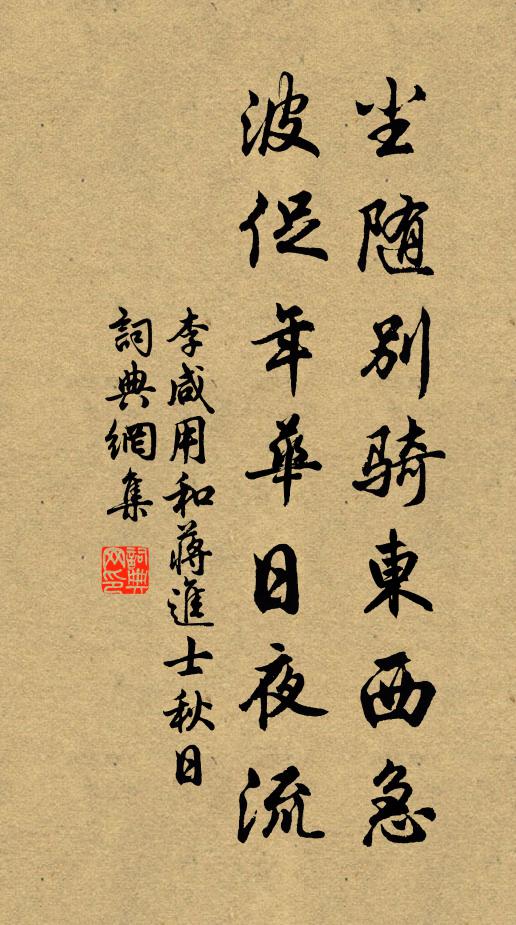 尘随别骑東西急
波促年華日夜流
李咸用和蔣進士秋日
詞典網集
詞典网印